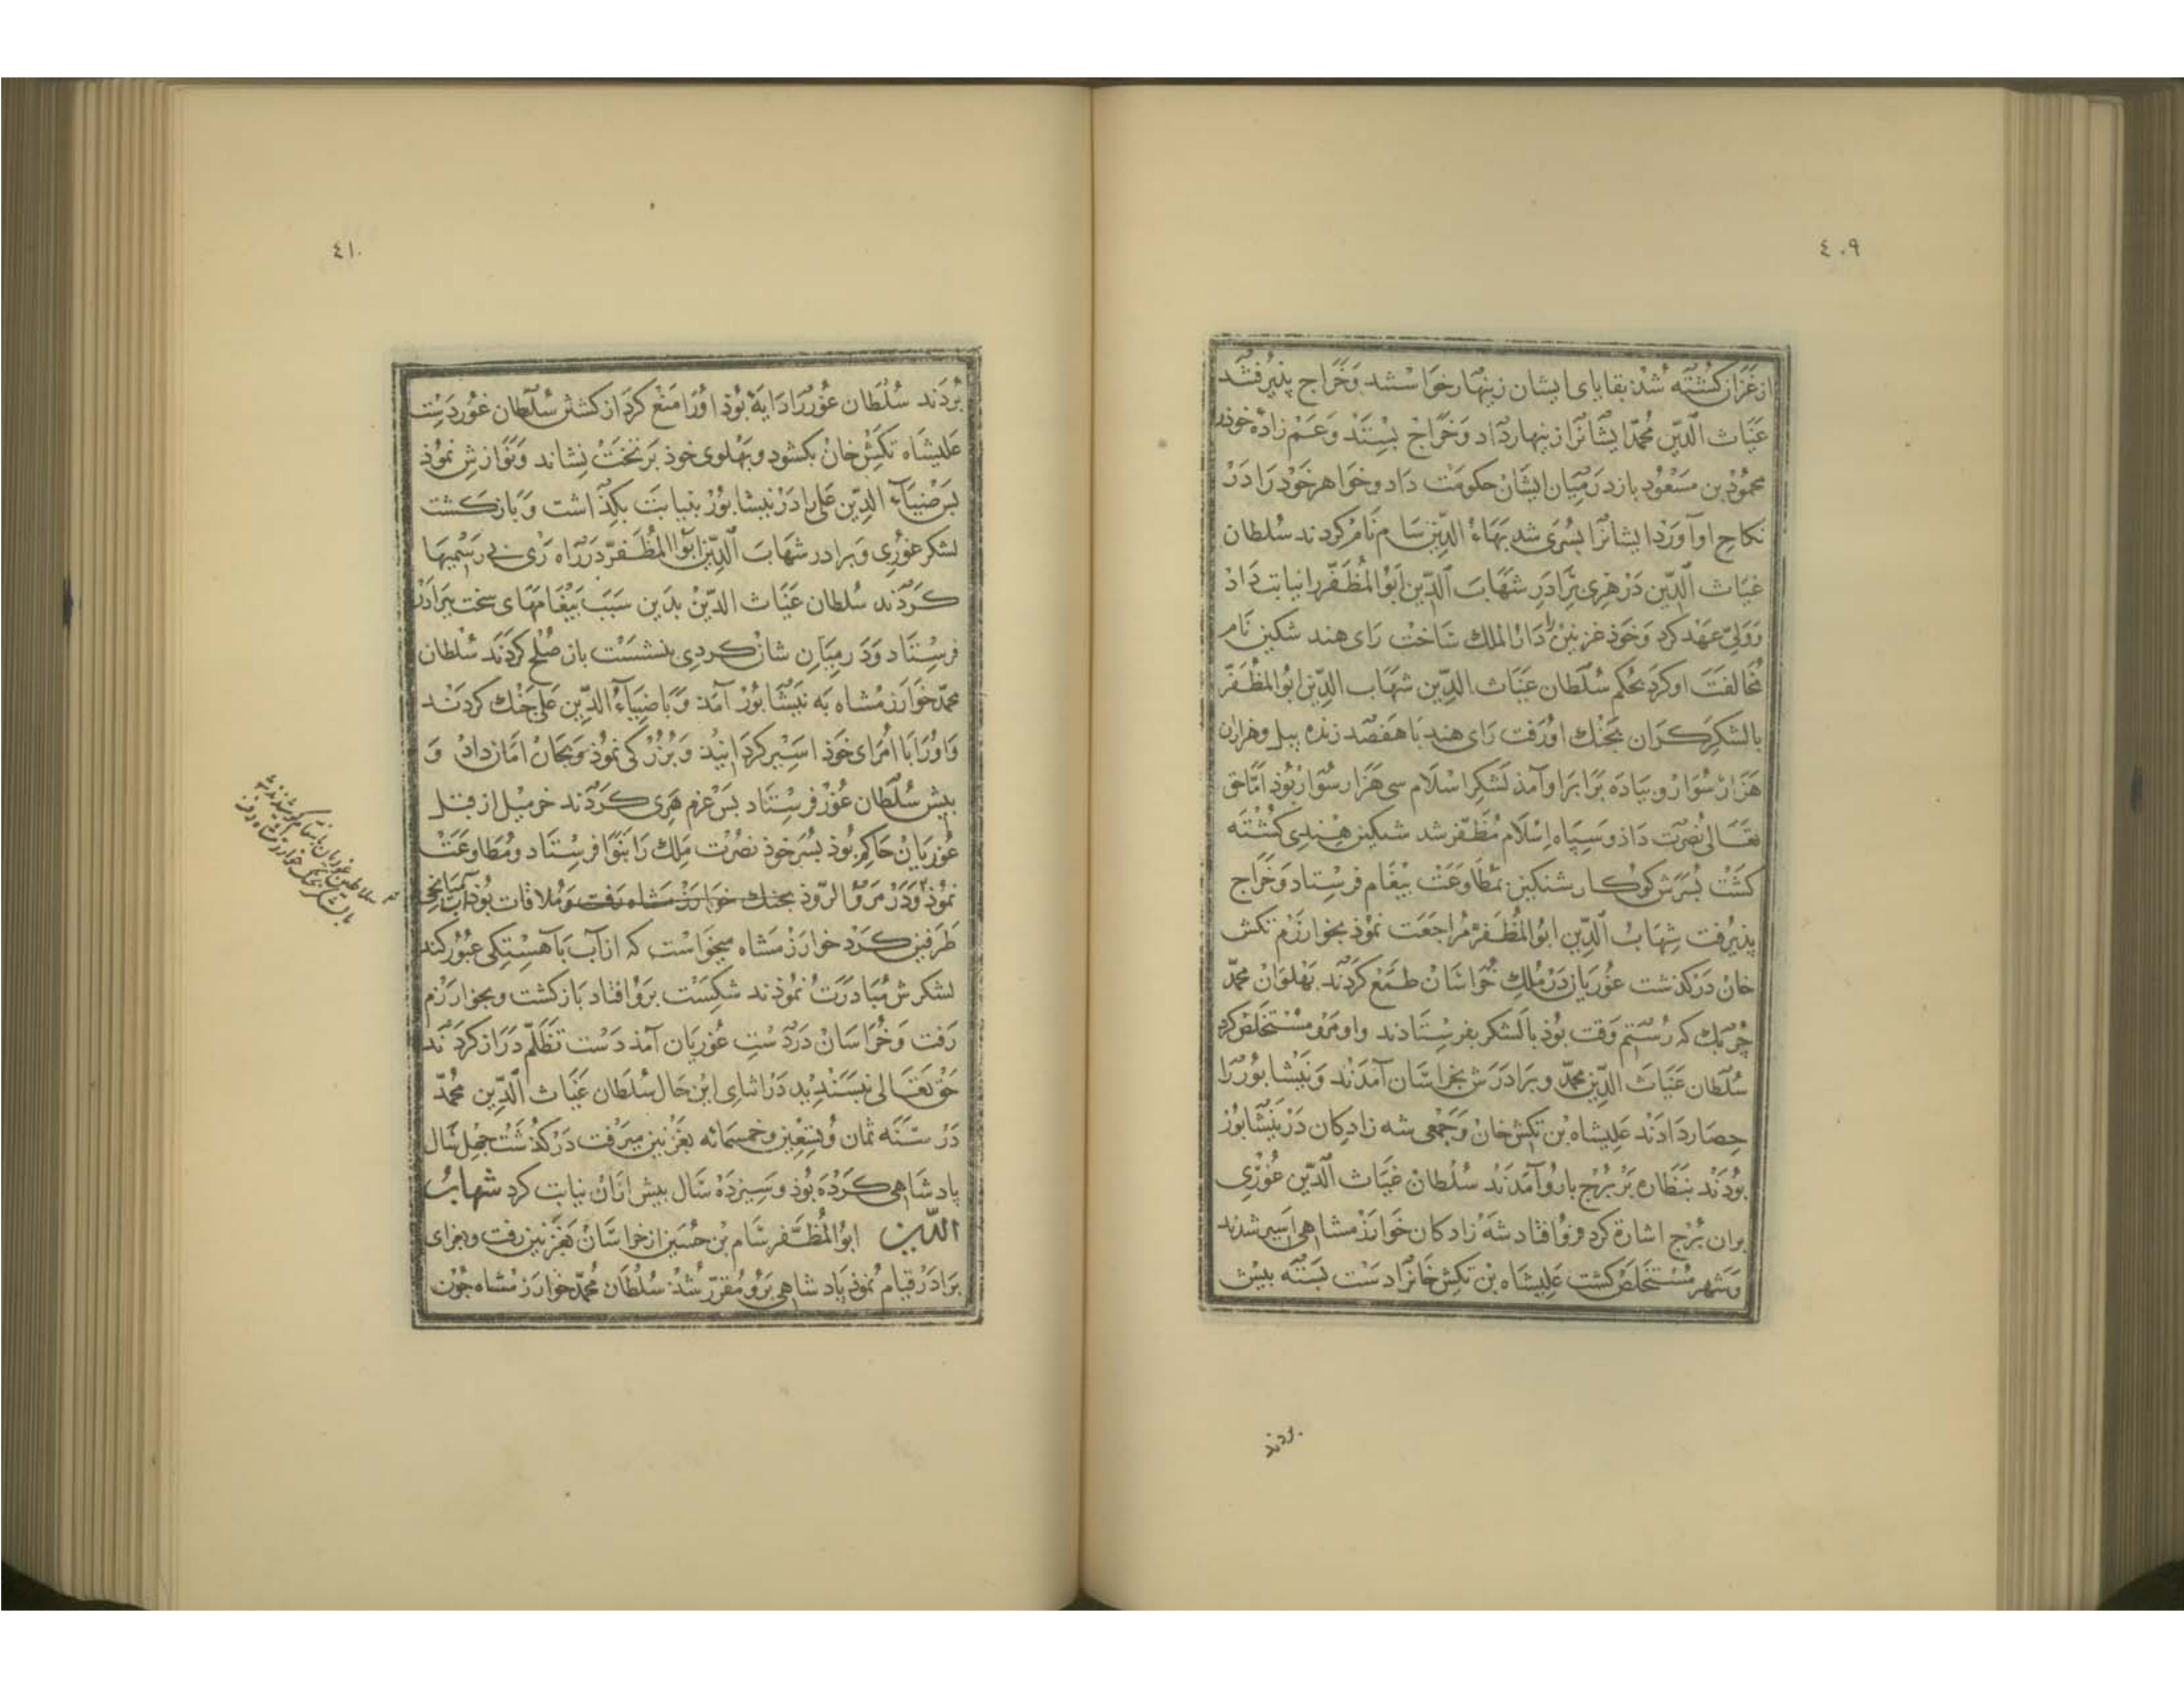 ٤٠٩
از غزان کشته شد بقایای ایشان زینهار خواستند و خراج پذیرفتند
غیاث الدین محمد ایشانرا زینهار داد و خراج بستند و عم زادهٔ خود را
محمود بن مسعود باز در میان ایشان حکومت داد و خواهر خود را در
نکاح او آورد ایشانرا پسری شد بهاء الدین سام نام کردند سلطان
غیاث الدین در هری برادر شهاب الدین ابو المظفر را نیابت داد
و ولی عهد کرد و خود غزنین را دار الملک ساخت رای هند شنکین نام
مخالفت او کرد بحکم سلطان غیاث الدین شهاب الدین ابو المظفر
با لشکر کران بجنک او رفت رای هند با هفصد زنده پیل و هزاران
هزار سوار و پیاده برابر او آمذ لشکر اسلام سی هزار سوار بوذ اما حق
تعالی نصرت داذ و سپاه اسلام مظفر شد شنکین هندی کشته
کشت پسرش کوکار شنکین بمطاوعت پیغام فرستاد و خراج
پذیرفت شهاب الدین ابو المظفر مراجعت نموذ بخوارزم تکش
خان در کذشت غوریان در ملک خراسان طمع کردند پهلوان محمد
خربک که رستم وقت بوذ با لشکر بفرستادند و او مرو مستخلص کرد
سلطان غیاث الدین محمد و برادرش بخراسان آمدند و نیشابور را
حصار دادند علیشاه بن تکش خان و جمعی شه زادکان در نیشابور
بودند بنظاره بر برج بارو آمدند سلطان غیاث الدین غوری
بران برج اشارة کرد فرو افتاد شه زادکان خوارزمشاهی اسیر شدند
و شهر مستخلص کشت علیشاه بن تکش خانرا دست بسته پیش
بردند
٤١٠
بردند سلطان غور را دایهٔ بوذ او را منع کرد از کشتن سلطان غور دست
علیشاه تکش خان بکشود و پهلوی خوذ بر تخت نشاند و نوازش نموذ
پس ضیاء الدین علی را در نیشابور بنیابت بکذاشت و باز کشت
لشکر غوری و برادر شهاب الدین ابو المظفر در راه ری بی رسمیها
کردند سلطان غیاث الدین بدین سبب پیغامهای سخت ببرادر
فرستاد و در میان شان کردی بنشست باز صلح کردند سلطان
محمد خوارزمشاه به نیشابور آمد و با ضیاء الدین علی جنک کردند
و او را با امرای خوذ اسیر کردانید و بزرکی نموذ و بجان امان داد و
پیش سلطان غور فرستاد پس عزم هری کردند خرمیل از قبل
غوریان حاکم بوذ پسر خوذ نصرت ملک را بنوا فرستاد و مطاوعت
نموذ و در مرو الروذ بجنک خوارزمشاه رفت و ملاقات بوذ آب میانجی
طرفین کرد خوارزمشاه میخواست که از آب بآهستکی عبور کند
لشکرش مبادرت نموذند شکست برو افتاد باز کشت و بخوارزم
رفت و خراسان در دست غوریان آمذ دست تظلم دراز کردند
حق تعالی نپسندید در اثنای این حال سلطان غیاث الدین محمد
در سنه ثمان و تسعین و خمسمائه بغزنین میرفت در کذشت چهل سال
پادشاهی کرده بوذ و سیزده سال پیش ازان نیابت کرد شهاب
الدین ابو المظفر سام بن حسین از خراسان بغزنین رفت و بعزای
برادر قیام نموذ پادشاهی برو مقرر شد سلطان محمد خوارزمشاه چون
سلاطین غوریان
با لشکر بجنک خوارزمشاه